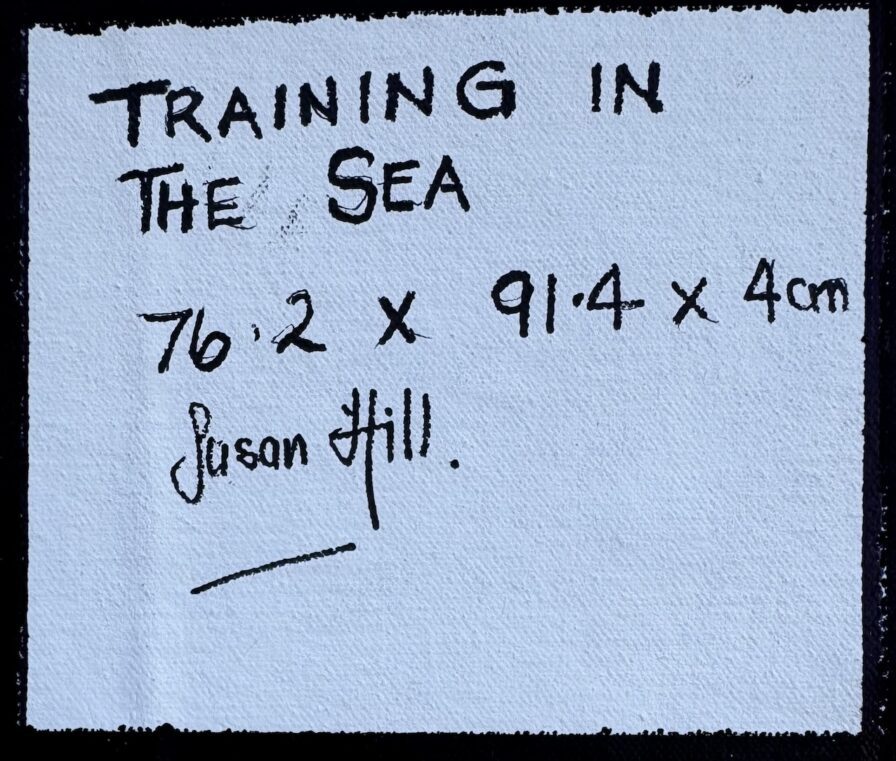 TRAINING IN
THE SEA
76.2 x 91.4 x 4cm
Susan Hill.